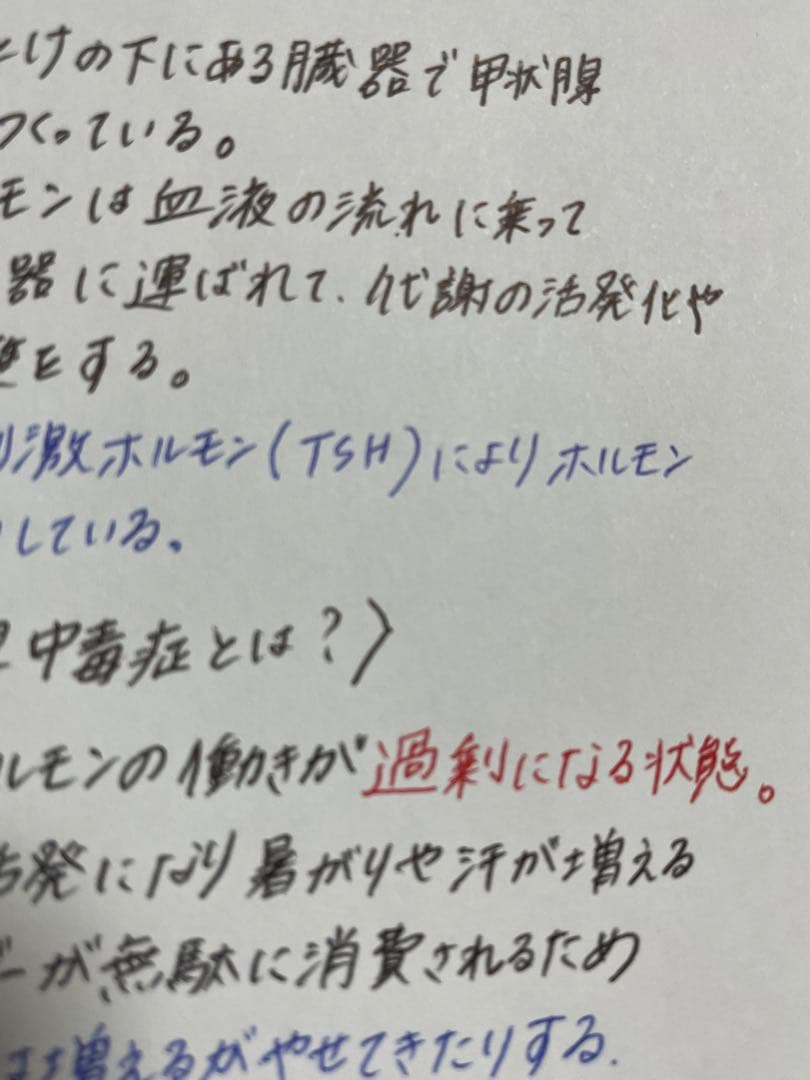 とけの下にある臓器で甲状腺
つくっている。
モンは血液の流れに乗って
器に運ばれて、代謝の活発化や
をする。
刺激ホルモン(TSH)によりホルモン
している。
中毒症とは?〉
ルモンの働きが過剰になる状態。
活発になり暑がりや汗が増える
ーが無駄に消費されるため
は増えるがやせてきたりする.